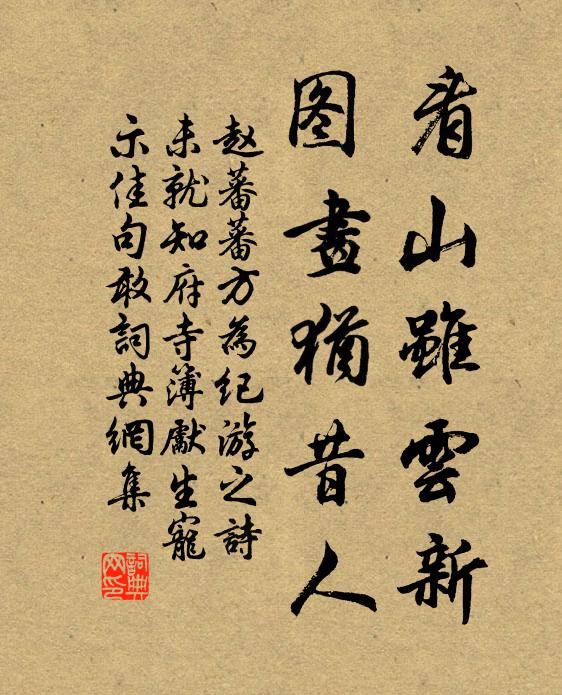 看山雖雲新
图畫猶昔人
赵蕃蕃方為紀游之詩
未就知府寺簿獻生寵
示佳句敢詞典網集
詞典網印